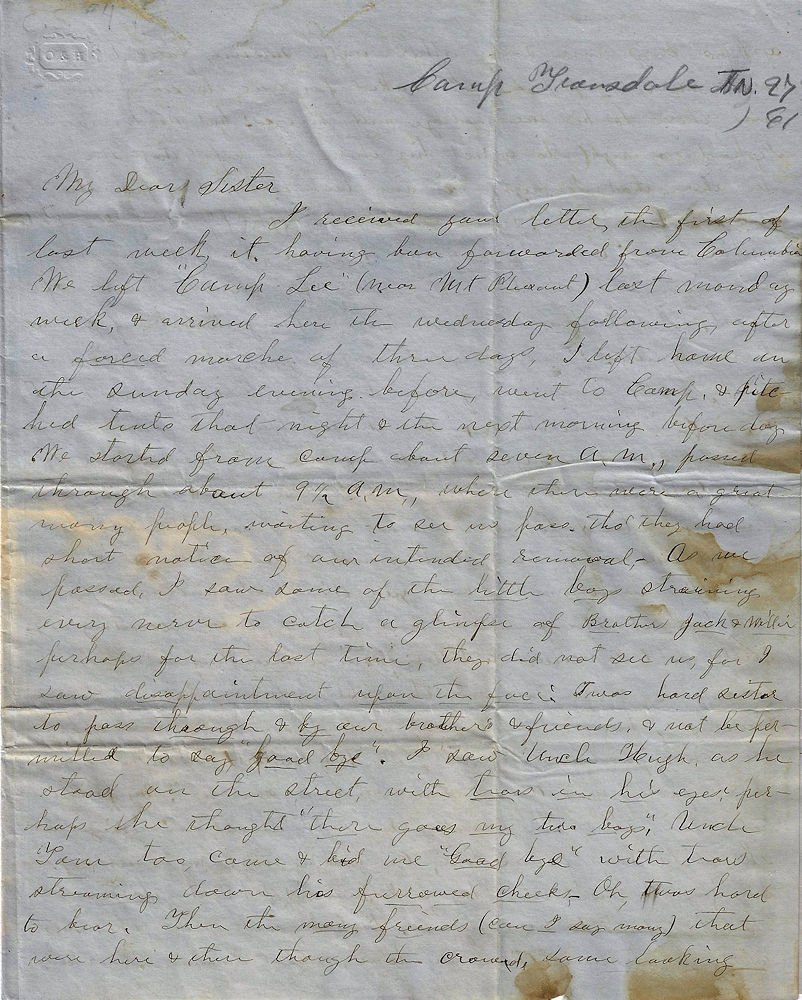 O & H
Camp Trousdale TN. 27
61
My Dear Sister
I received your letter, the first of
last week, it having been forwarded from Columbia
We left "Camp Lee" (near Mt Pleasant) last monday
week, & arrived here the wednesday following, after
a forced marche of three days, I left home on
the Sunday evening before, went to Camp, & pitc-
hed tents that night & the next morning before day
We started from camp about seven A.M., passed
through about 9½ A.M., where there were a great
many people, waiting to see us pass. tho' they had
short notice of our intended removal,- As we
passed, I saw some of the little boys straining
every nerve to catch a glimpse of Brothers Jack & Willie
perhaps for the last time, they did not see us, for I
saw disappointment upon the face. Twas hard sister
to pass through & by our brothers & friends, & not be per-
mitted to say "good bye". I saw Uncle Hugh, as he
stood on the street, with tears in his eyes, per-
haps he thought "there goes my two boys", Uncle
Tom too, came & bid me "Good bye" with tears
streaming down his furrowed cheeks- Oh, twas hard
to bear. Then the many friends (can I say many) that
were here & there though the crowd, some looking